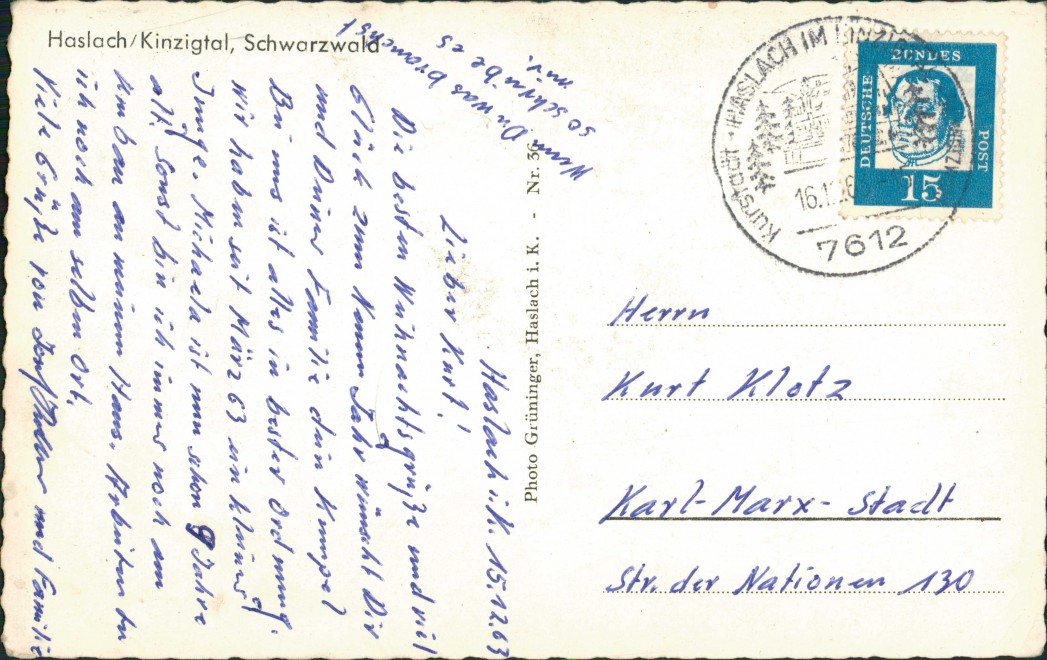 Haslach/Kinzigtal, Schwarzwald
Haslach i. K. 15.12.63
Lieber Kurt!
Die besten Weihnachtsgrüße und viel
Glück zum Neuen Jahr wünscht Dir
und Deiner Familie dein Kumpel
Bei uns ist alles in bester Ordnung.
Wir haben seit März 63 ein kleiner
Junge. Michaela ist nun schon 9 Jahre
alt. Sonst bin ich immer noch am
Umbau an meinem Haus. Arbeiten tu
ich noch am selben Ort.
Viele Grüße von und Familie
Wenn Du was brauchst
so schreibe es
mir.
Photo Grüninger, Haslach i. K. - Nr. 36
Kurstadt HASLACH IM KINZIG
16.12.6
7612
DEUTSCHE
BUNDES
POST
15
Herrn
Kurt Klotz
Karl-Marx-Stadt
Str. der Nationen 130